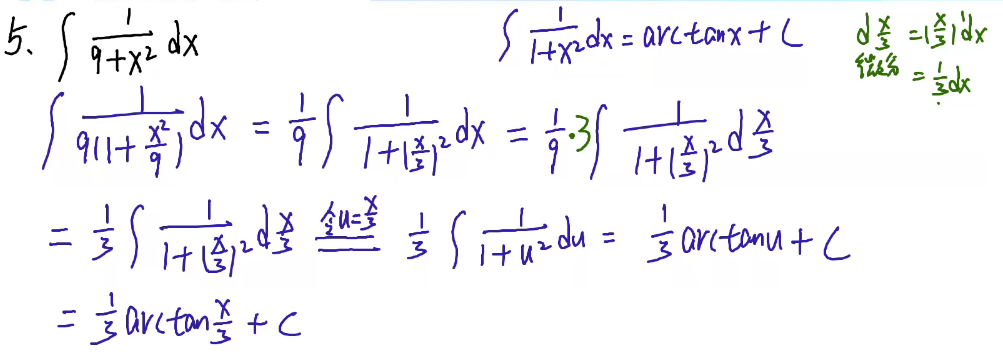 5、∫ 1/(9+x²) dx
∫ 1/(1+x²) dx = arctanx + C
d x/3 = (x/3)' dx
= 1/3 dx
∫ 1/(9(1+x²/9)) dx = 1/9 ∫ 1/(1+(x/3)²) dx = 1/9·3 ∫ 1/(1+(x/3)²) d x/3
= 1/3 ∫ 1/(1+(x/3)²) d x/3 令u=x/3 1/3 ∫ 1/(1+u²) du = 1/3 arctanu + C
= 1/3 arctan x/3 + C